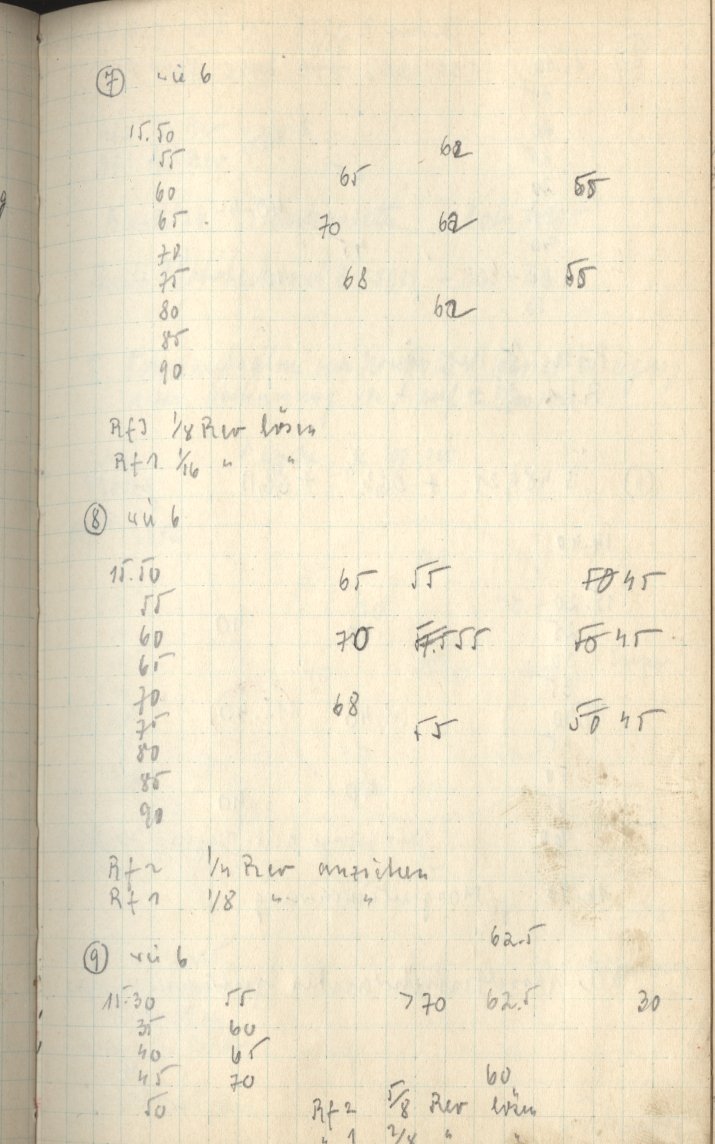 ⑦ wie 6
15.50
55 62
60 65 55
65 70 62
70
75 68 55
80 62
85
90
Rf 3 1/8 Rev lösen
Rf 1 1/16 " "
⑧ wie 6
15.50 65 55 50 45
55
60 70 55 50 45
65
70 68
75 55 50 45
80
85
90
Rf 2 1/4 Rev anziehen
Rf 1 1/8 " "
62.5
⑨ wie 6
15.30 55 >70 62.5 30
35 60
40 65
45 70 60
50 Rf 2 5/8 Rev lösen
" 1 2/8 "